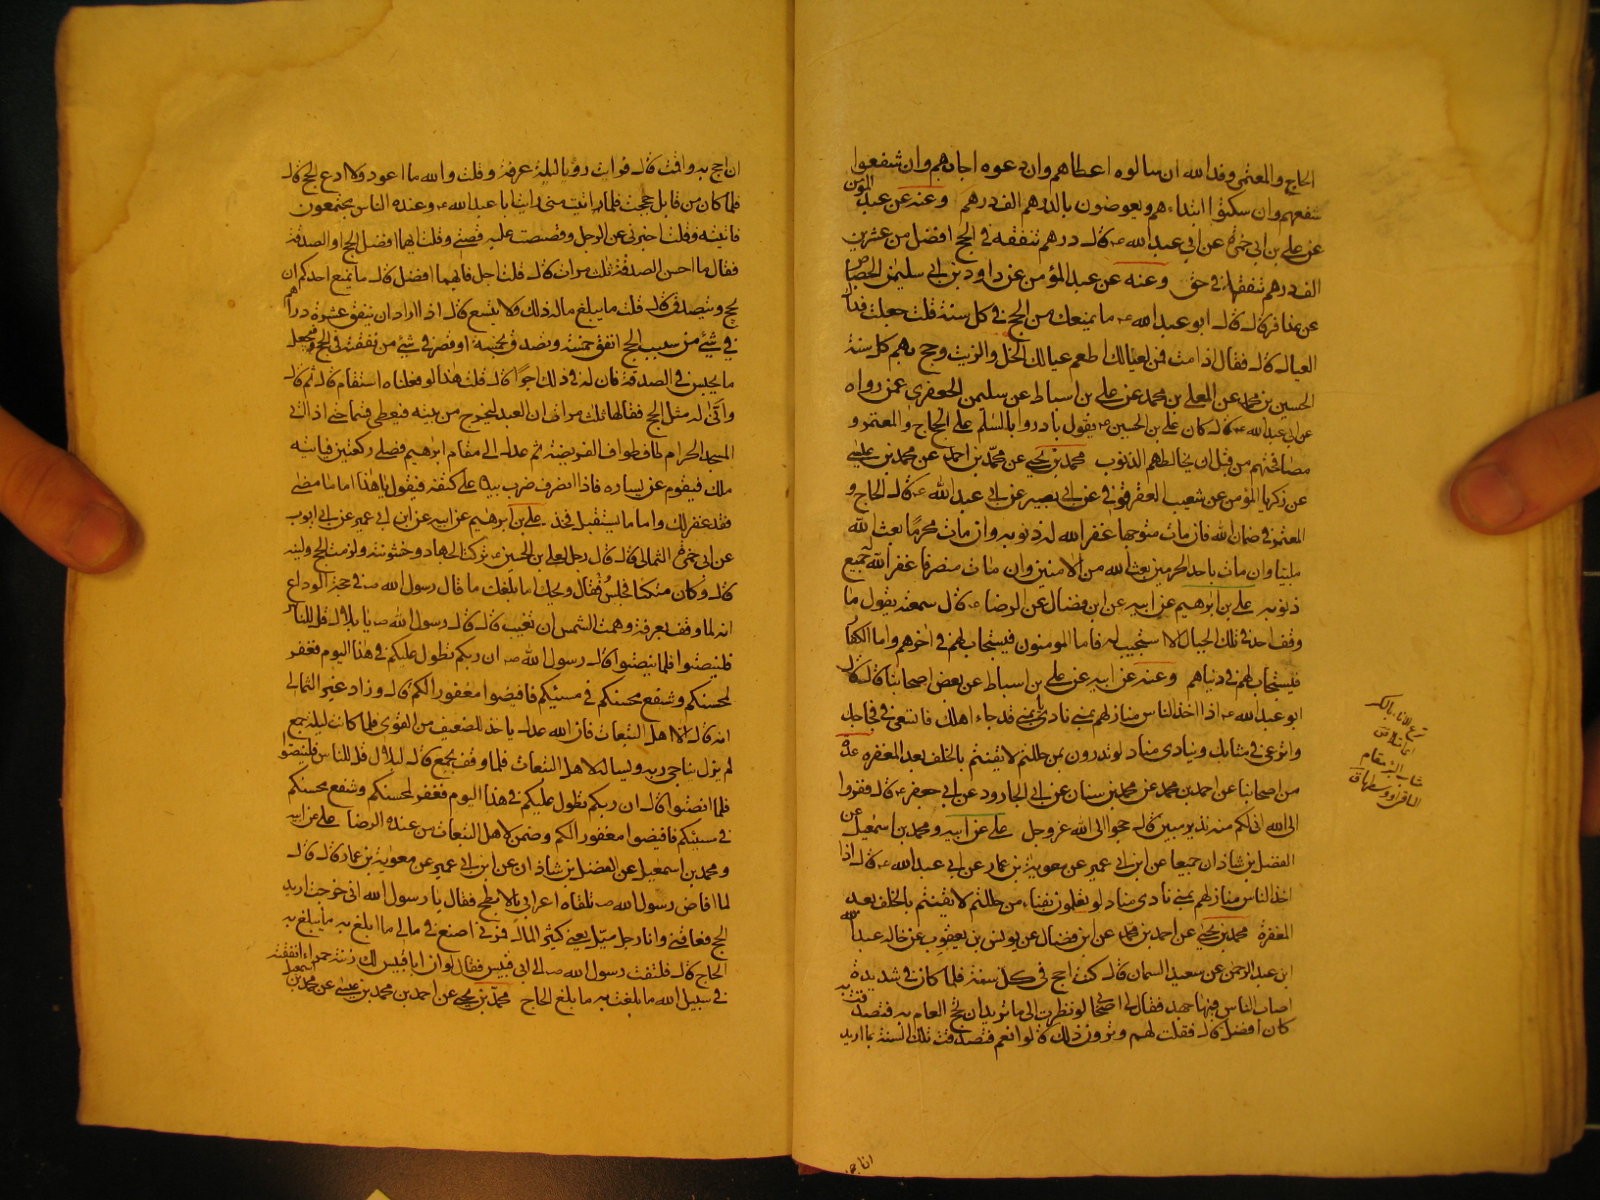 الحاج والمعتمر وفد الله ان سالوه اعطاهم وان دعوه اجابهم وان شفعوا
شفعهم وان سكتوا ابتداءهم ويعوضون بالدرهم الف درهم وعنه عن عبد المؤمن
عن علي بن ابي حمزة عن ابي عبد الله ع قال درهم تنفقه في الحج افضل من عشرين
الف درهم تنفقها في حق وعنه عن عبد المؤمن عن داود بن ابي سليمن الجصاص
عن عذافر قال قال ابو عبد الله ع ما يمنعك من الحج في كل سنة قلت جعلت فداك
العيال قال فقال اذا مت فمن لعيالك اطعم عيالك الخل والزيت وحج بهم كل سنة
الحسين بن محمد عن المعلى بن محمد عن علي بن اسباط عن سليمن الجعفري عمن رواه
عن ابي عبد الله ع قال كان علي بن الحسين ع يقول بادروا بالسلم على الحاج والمعتمر و
مصافحتهم من قبل ان يخالطهم الذنوب محمد بن يحيى عن محمد بن احمد عن محمد بن عيسى
عن زكريا المؤمن عن شعيب العقرقوفي عن ابي بصير عن ابي عبد الله ع قال الحاج و
المعتمر في ضمان الله فان مات متوجها غفر الله له ذنوبه وان مات محرما بعثه الله
ملبيا وان مات باحد الحرمين بعثه الله من الامنين وان مات منصرفا غفر الله له جميع
ذنوبه علي بن ابرهيم عن ابيه عن ابن فضال عن الرضا ع قال سمعته يقول ما
وقف احد في تلك الجبال الا استجيب له فاما المومنون فيستجاب لهم في اخرهم واما الكفا
فيستجاب لهم في دنياهم وعنه عن ابيه عن علي بن اسباط عن بعض اصحابنا قال قال
ابو عبد الله ع اذا اخذ الناس منازلهم بمنى نادى مناد يا منى قد جاء اهلك فاتسعي في فجاجك
واترعي في مثابك وينادي مناد لو تدرون بمن حللتم لايقنتم بالخلف بعد المغفرة عدة
من اصحابنا عن احمد بن محمد عن محمد بن سنان عن ابي الجارود عن ابي جعفر ع قال ففروا
الى الله اني لكم منه نذير مبين قال حجوا الى الله عز وجل علي عن ابيه ومحمد بن اسمعيل عن
الفضل بن شاذان جميعا عن ابن ابي عمير عن معوية بن عمار عن ابي عبد الله ع قال اذا
اخذ الناس منازلهم بمنى نادى مناد لو تعلمون بفناء من حللتم لايقنتم بالخلف بعد
المغفرة محمد بن يحيى عن احمد بن محمد عن ابن فضال عن يونس بن يعقوب عن خاله عبد الله
ابن عبد الرحمن عن سعيد السمان قال كنت احج في كل سنة فلما كان في شديدة
اصاب الناس فيها جهد فقال لي اصحابي لو نظرت الى ما تريد ان تحج العام به فتصدقت به
كان افضل قال فقلت لهم وترون ذلك قالوا نعم فتصدقت تلك السنة بما اريد
ان احج به واقمت قال فرايت رؤيا ليلة عرفة وقلت والله ما اعود ولا ادع الحج قال
فلما كان من قابل حججت فلما اتيت منى رايت ابا عبد الله ع وعنده الناس مجتمعون
فاتيته وقلت اخبرني عن الرجل وقصصت عليه قصتي وقلت ايهما افضل الحج او الصدقة
فقال ما احسن الصدقة ثلث مرات قال قلت اجل فايهما افضل قال ما يمنع احدكم ان
يحج ويتصدق قال قلت ما يبلغ ماله ذلك ولا يتسع قال اذا اراد ان ينفق عشرة دراهم
في شئ من سبب الحج انفق خمسة وتصدق بخمسة او قصر في شئ من نفقته في الحج فيجعل
ما يحبس في الصدقة فان له في ذلك اجرا قال قلت هذا لو فعلناه استقام قال ثم قال
وانى له مثل الحج فقالها ثلث مرات ان العبد ليخرج من بيته فيعطي قسما حتى اذا اتى
المسجد الحرام طاف طواف الفريضة ثم عدل الى مقام ابرهيم فصلى ركعتين فياتيه
ملك فيقوم عن يساره فاذا انصرف ضرب بيده على كتفه فيقول يا هذا اما ما مضى
فقد غفر لك واما ما يستقبل فجد علي بن ابرهيم عن ابيه عن ابن ابي عمير عن ابي ايوب
عن ابي حمزة الثمالي قال قال رجل لعلي بن الحسين ع تركت الجهاد وخشونته ولزمت الحج ولينه
قال وكان متكئا فجلس فقال ويحك اما بلغك ما قال رسول الله ص في حجة الوداع
انه لما وقف بعرفة وهمت الشمس ان تغيب قال قال رسول الله ص يا بلال قل للناس
فلينصتوا فلما نصتوا قال رسول الله ص ان ربكم تطول عليكم في هذا اليوم فغفر
لمحسنكم وشفع محسنكم في مسيئكم فافيضوا مغفورا لكم قال وزاد غير الثمالي
انه قال الا اهل التبعات فان الله عدل ياخذ للضعيف من القوي فلما كانت ليلة جمع
لم يزل يناجي ربه ويساله لاهل التبعات فلما وقف بجمع قال لبلال قل للناس فلينصتوا
فلما انصتوا قال ان ربكم تطول عليكم في هذا اليوم فغفر لمحسنكم وشفع محسنكم
في مسيئكم فافيضوا مغفورا لكم وضمن لاهل التبعات من عنده الرضا علي عن ابيه
ومحمد بن اسمعيل عن الفضل بن شاذان عن ابن ابي عمير عن معوية بن عمار قال قال
لما افاض رسول الله ص تلقاه اعرابي بالابطح فقال يا رسول الله اني خرجت اريد
الحج فعاقني وانا رجل ميل يعني كثير المال فمرني اصنع في مالي ما ابلغ به ما يبلغ به
الحاج قال فلتفت رسول الله ص الى ابي قبيس فقال لو ان ابا قبيس لك زنته حمراء انفقته
في سبيل الله ما بلغت به ما بلغ الحاج محمد بن يحيى عن احمد بن محمد بن عيسى عن محمد بن اسمعيل